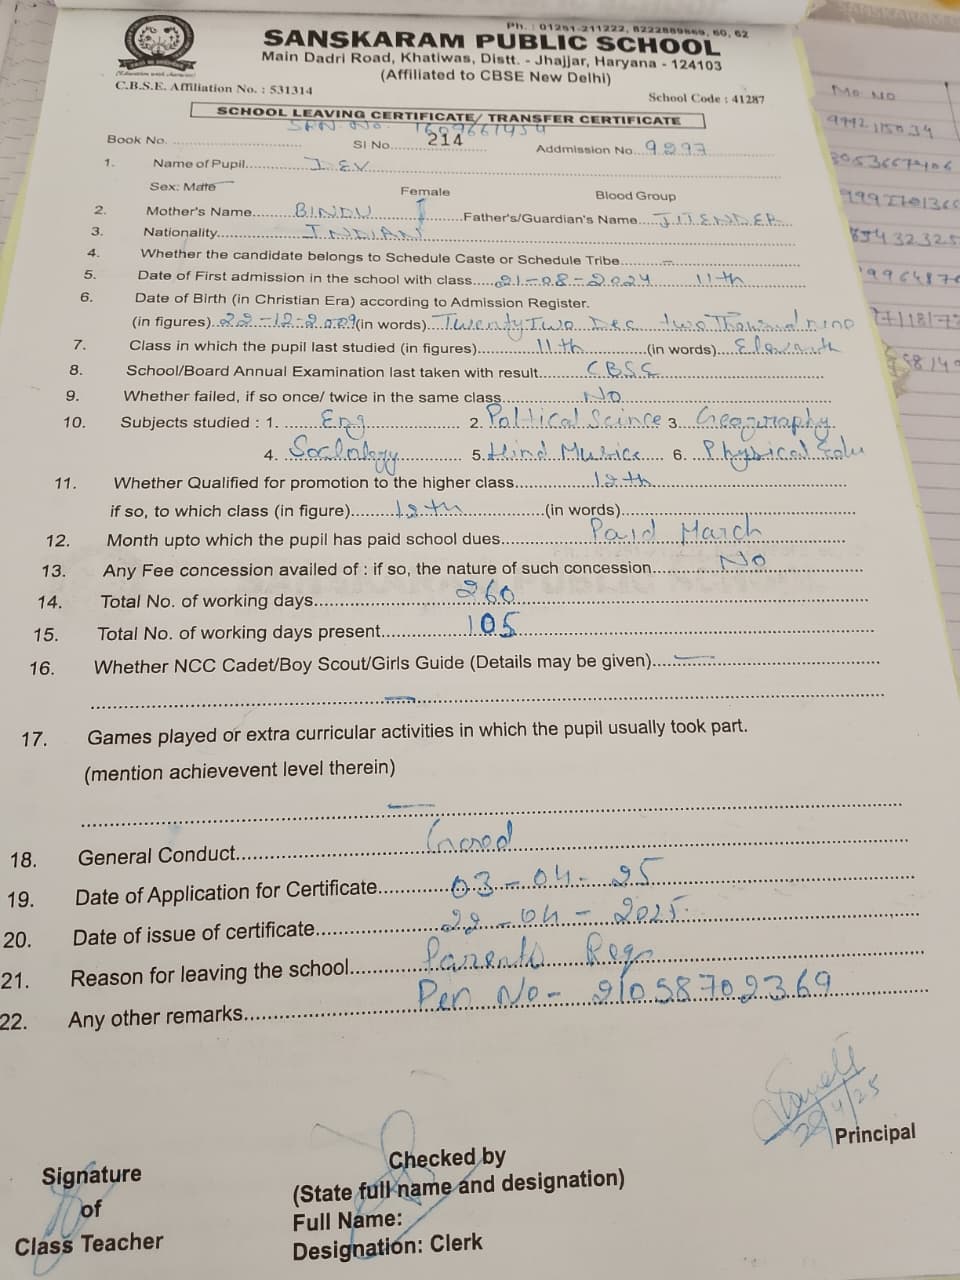 Ph. : 01251-211222, 8222889869, 60, 62
SANSKARAM PUBLIC SCHOOL
Main Dadri Road, Khatiwas, Distt. - Jhajjar, Haryana - 124103
(Affiliated to CBSE New Delhi)
C.B.S.E. Affiliation No. : 531314
School Code : 41287
SCHOOL LEAVING CERTIFICATE/ TRANSFER CERTIFICATE
SRN No. 1609661454
Book No. Sl No. 214 Addmission No. 9297
1. Name of Pupil DEV
Sex: Male Female Blood Group
2. Mother's Name BINDU Father's/Guardian's Name JITENDER
3. Nationality INDIAN
4. Whether the candidate belongs to Schedule Caste or Schedule Tribe -
5. Date of First admission in the school with class 21-08-2024 11th
6. Date of Birth (in Christian Era) according to Admission Register.
(in figures) 22-12-2009 (in words) Twenty Two Dec two Thousand nine
7. Class in which the pupil last studied (in figures) 11th (in words)
8. School/Board Annual Examination last taken with result CBSE
9. Whether failed, if so once/ twice in the same class No
10. Subjects studied : 1. Eng 2. Poltical Scince 3. Geography
4. Sociology 5. Hind Musice 6. Physical Edu
11. Whether Qualified for promotion to the higher class 12th
if so, to which class (in figure) 12th (in words)
12. Month upto which the pupil has paid school dues Paid March
13. Any Fee concession availed of : if so, the nature of such concession No
14. Total No. of working days 260
15. Total No. of working days present 105
16. Whether NCC Cadet/Boy Scout/Girls Guide (Details may be given) -
17. Games played or extra curricular activities in which the pupil usually took part.
(mention achievevent level therein)
18. General Conduct Good
19. Date of Application for Certificate 03-04-25
20. Date of issue of certificate 22-04-2025
21. Reason for leaving the school Parents Req
22. Any other remarks Pen No- 21058702369
Principal
Signature
of
Class Teacher
Checked by
(State full name and designation)
Full Name:
Designation: Clerk